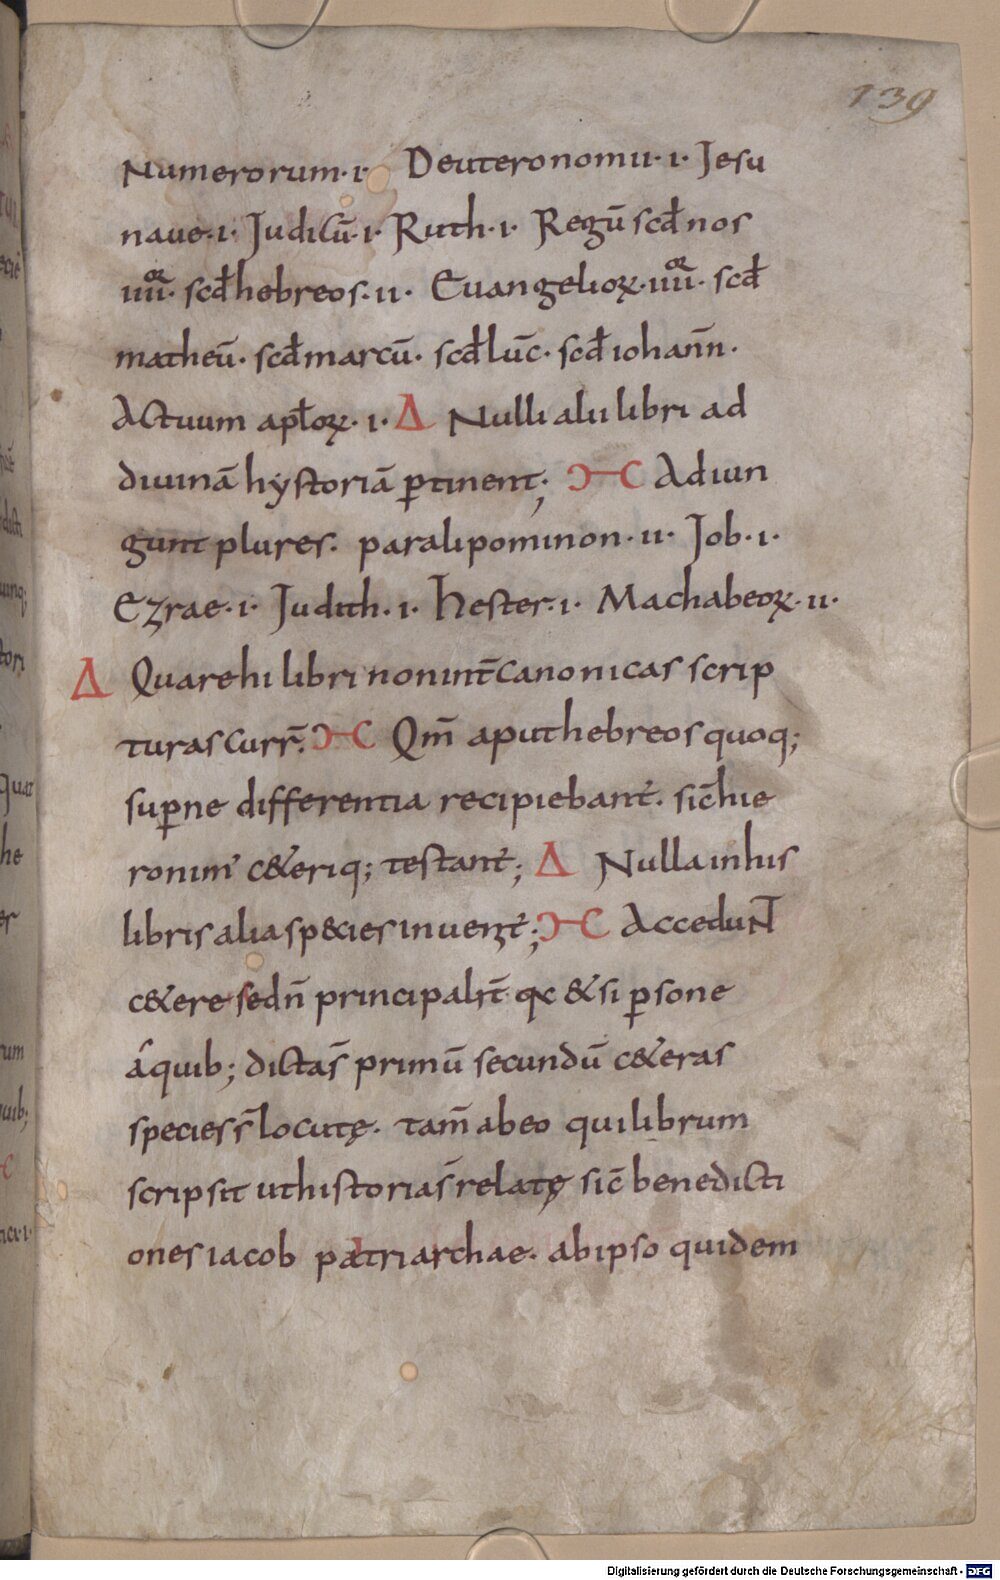 139
Numerorum·i· Deuteronomii·i· Jesu
naue·i· Judicū·i· Ruth·i· Regū scđ nos
iiii^orꝝ· scđ hebreos·ii· Euangelioꝝ·iiii^orꝝ· scđ
matheū· scđ marcū· scđ lūc· scđ iohañn·
Actuum aptꝉoꝝ·i· Δ Nulli alii libri ad
diuinā hystoriā ꝑtinent; ϽC Adiun
gunt plures· paralipominon·ii· Job·i·
Ezrae·i· Judith·i· Hester·i· Machabeoꝝ·ii·
Δ Quare hi libri non int̄ canonicas scrip
turas curr̄· ϽC Qm̄ aput hebreos quoq;
suꝑ ne differentia recipiebant̄· sic̄ hie
ronim' c&eriq; testant̄; Δ Nulla in his
libris alia sp&cies inuenit̄; ϽC Accedunt
c&ere sed n̄ principalit̄· qc &si ꝑsone
a quib; dictas̄ primū secundū c&eras
species s̄ locutę· tam̄ ab eo qui librum
scripsit ut historias̄ relatę sic̄ benedicti
ones iacob patriarchae· ab ipso quidem
Digitalisierung gefördert durch die Deutsche Forschungsgemeinschaft - DFG